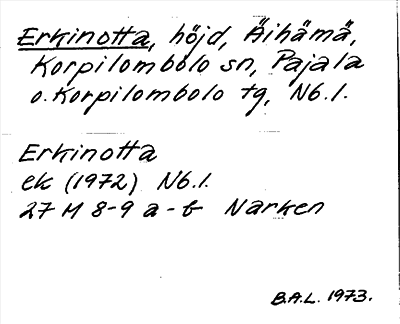 Erkinotta, höjd, Äihämä,
Korpilombolo sn, Pajala
o. Korpilombolo tg, Nb.l.
Erkinotta
ek (1972) Nb.l.
27 M 8-9 a-b Narken
B.A.L. 1973.